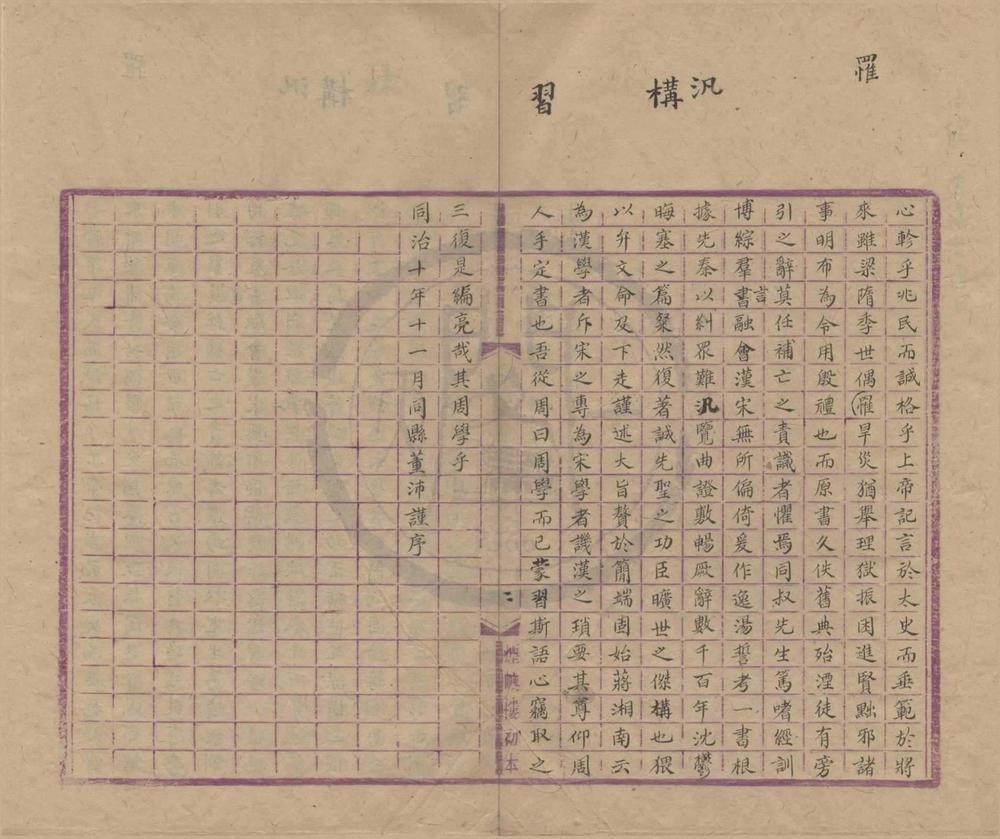 罹
汎
構
習
心軫乎兆民而誠格乎上帝記言於太史而垂範於將
來雖梁隋季世偶罹旱災猶舉理獄振困進賢黜邪諸
事明布為令用殷禮也而原書久佚舊典殆湮徒有旁
引之辭莫任補亡之責識者懼焉同叔先生篤嗜經訓
博綜羣書融會漢宋無所偏倚爰作逸湯誓考一書根
言
據先秦以糾眾難汎覽曲證敷暢厥辭數千百年沈鬱
晦塞之篇粲然復著誠先聖之功臣曠世之傑構也猥
以弁文命及下走謹述大旨贅於簡端固始蔣湘南云
為漢學者斥宋之專為宋學者譏漢之瑣要其尊仰周
人手定書也吾從周曰周學而已蒙習斯語心竊取之
二
煙嶼樓初本
三復是編亮哉其周學乎
同治十年十一月同縣董沛謹序